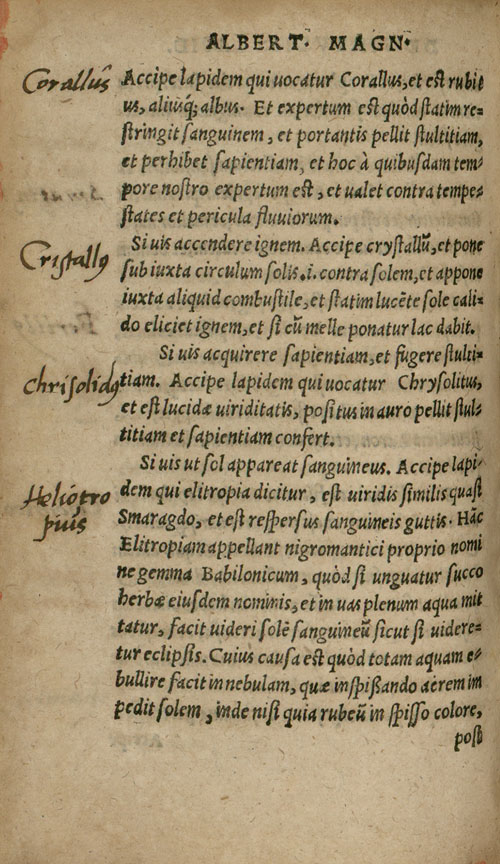 ALBERT. MAGN.
Corallus̄
Accipe lapidem qui uocatur Corallus, et est rubit
us, aliusq́; albus. Et expertum est quòd statim re=
stringit sanguinem, et portantis pellit stultitiam,
et perhibet sapientiam, et hoc à quibusdam tem=
pore nostro expertum est, et ualet contra tempe=
states et pericula fluuiorum.
Cristallꝰ
Si uis accendere ignem. Accipe crystallū, et pone
sub iuxta circulum solis.i. contra solem, et appone
iuxta aliquid combustile, et statim lucēte sole cali=
do eliciet ignem, et si cū melle ponatur lac dabit.
Si uis acquirere sapientiam, et fugere stulti=
chrisolidꝰ
tiam. Accipe lapidem qui uocatur Chrysolitus,
et est lucidæ uiriditatis, positus in auro pellit stul=
titiam et sapientiam confert.
Si uis ut sol appareat sanguineus. Accipe lapi=
Heliotro
pius
dem qui elitropia dicitur, est uiridis similis quasi
Smaragdo, et est respersus sanguineis guttis. Hāc
Elitropiam appellant nigromantici proprio nomi
ne gemma Babilonicum, quòd si unguatur succo
herbæ eiusdem nominis, et in uas plenum aqua mit
tatur, facit uideri solē sanguineū sicut si uidere=
tur eclipsis. Cuius causa est quòd totam aquam e=
bullire facit in nebulam, quæ inspißando aerem im
pedit solem, inde nisi quia rubeū in spisso colore,
post